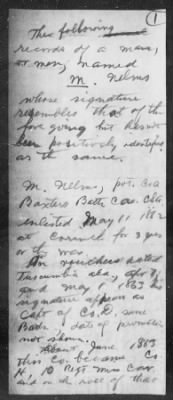 1
The following
records of a man,
or men, named
M. Nelms
whose signature
resembles that of the
fore going but has not
been positively identified
as the same.
M. Nelms, pvt. Co a
Baxters Battn Cav. CSA
enlisted May 11 1862
at Corinth for 3 yrs
or the war.
On vouchers dated
Tuscumbia ala, apr 8
and May 1 1863 his
signature appears as
Capt of Co. D, same
Battn., date of promotion
not shown.
About June 1863
this Co. became Co
H, 10 Regt Miss Cav.
and on the roll of that